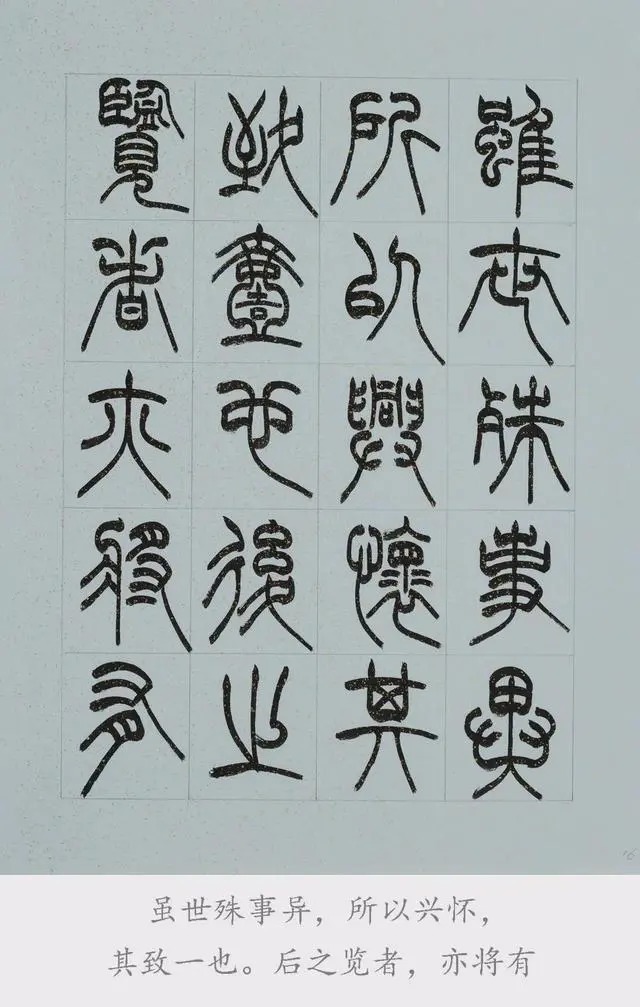 雖世殊事異
所以興懷其
致壹也後之
覽者亦將有
16
虽世殊事异，所以兴怀，
其致一也。后之览者，亦将有